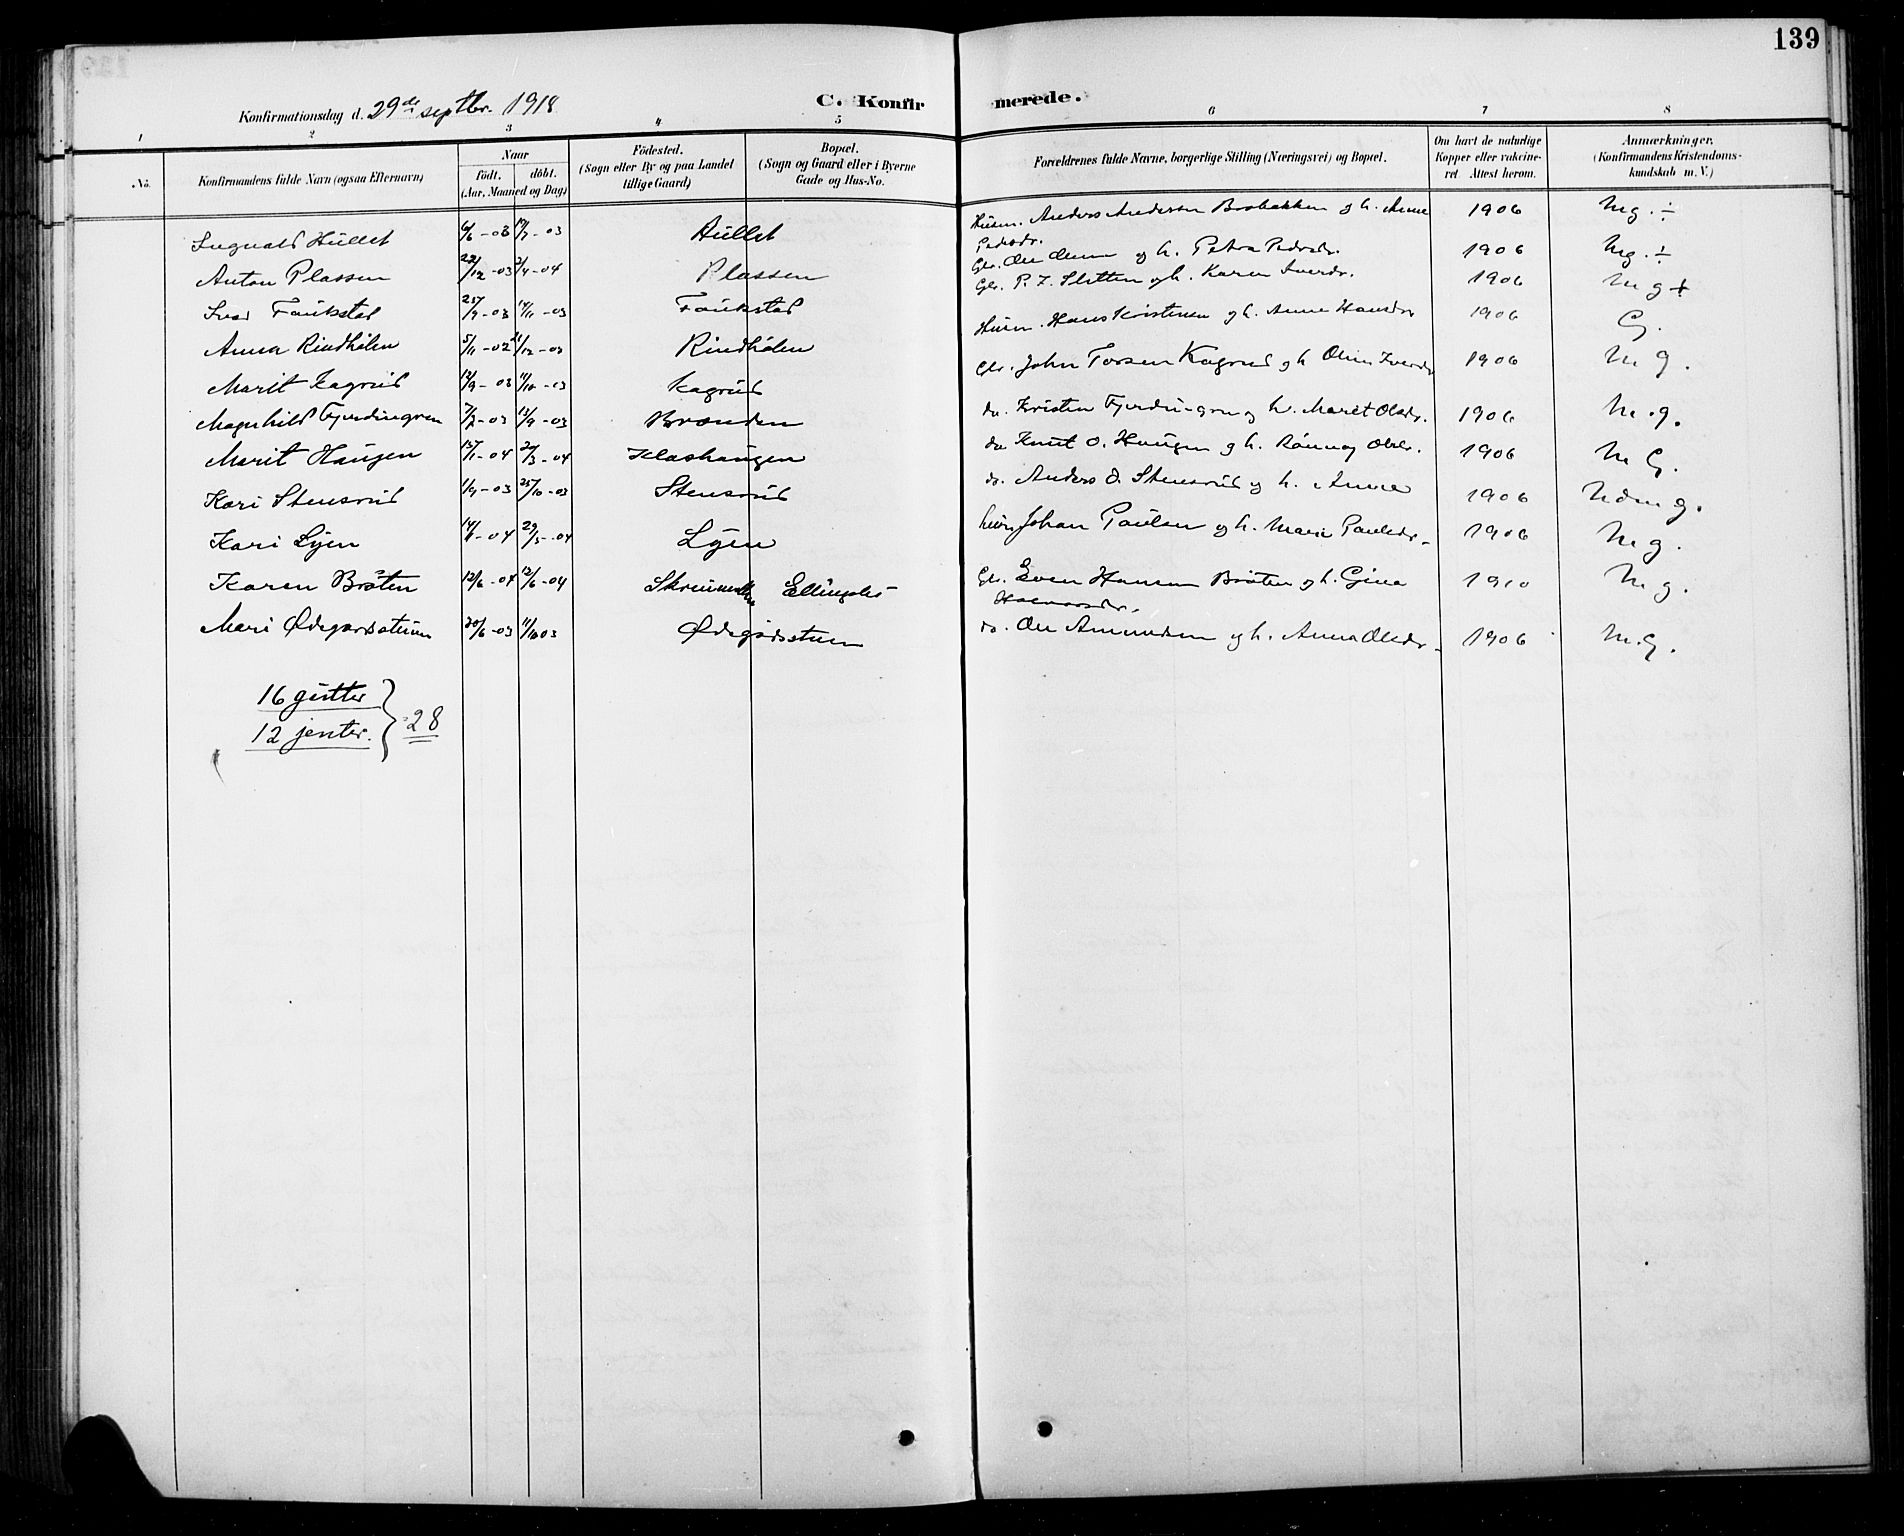 139
Konfirmationsdag d. 29de septbr. 1918
C. Konfirmerede.
1 2 3 4 5 6 7 8
No. Konfirmandens fulde Navn (ogsaa Efternavn) Naar födt. döbt. (Aar, Maaned og Dag) Födested. (Sogn eller By og paa Landet tillige Gaard) Bopæl. (Sogn og Gaard eller i Byerne Gade og Hus-No. Forældrenes fulde Navne, borgerlige Stilling (Næringsvei) og Bopæl. Om havt de naturlige Kopper eller vakcineret. Attest herom. Anmærkninger. (Konfirmandens Kristendomskundskab m. V.)
Hullet 6/6-03 -03 Hullet Husm. Anders Andersen Brobakken og h. Anne Pedsdr. 1906 Mg. ÷
Anton Plassen 22/12-03 2/4-04 Plassen Gbr. og h. Petra Pedrsdr. 1906 Mg. ÷
Ivar Faukstad 25/9-03 /11-03 Faukstad Gbr. P. I. Sletten og h. Karen Iversdr. 1906 Mg +
Anna Rindhölen 5/11-02 /12-03 Rindhölen Husm. Hans Kristensen og h. Anne Hansdr 1906 G.
Marit Kagrud 12/9-03 11/10-03 Kagrud Gbr. John Torsen Kagrud og h Oline Iversdr 1906 Mg.
Magnhild Fjerdingren 7/7-03 13/9-03 Brænden do. Kristen og h. Marit Olsdr. 1906 M.g.
Marit Haugen 15/1-04 20/3-04 Klashaugen do Knut O. Haugen og h. Rönnog Olsdr. 1906 M G.
Kari Stensrud 1/9-03 25/10-03 Stensrud do. Anders O. Stensrud og h. Anne 1906 Udm g.
Kari Lyen 14/1-04 29/5-04 Lyen Johan Paulsen og h. Mari Paulsdr. 1906 Mg.
Karen Bråten 12/6-04 12/6-04 Ellingsbö Gbr. Even Hansen Bråten og h. Gina Halvorsdr. 1910 Mg.
Mari Ødegårdsstuen 20/6-03 11/10 03 Ødegårdsstuen do. Ole Amundsen og h. Anna Olsdr. 1906 M.G.
16 gutter
12 jenter.
} = 28